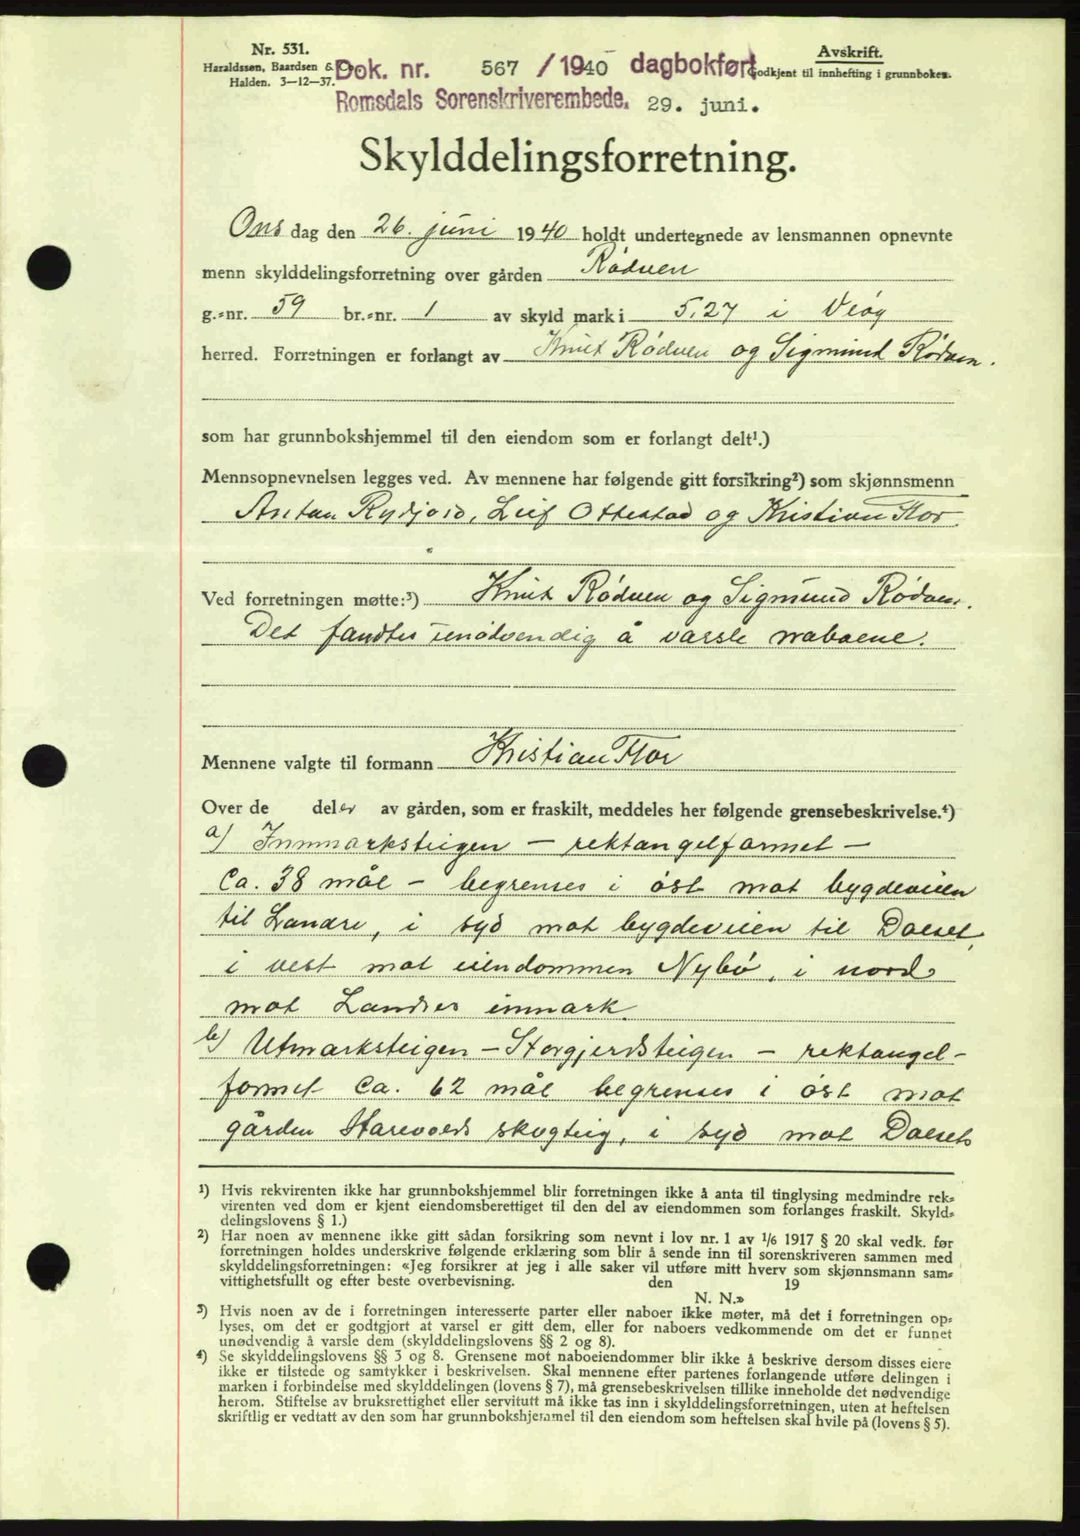 Nr. 531.
Haraldssen, Baardsen & Co.
Halden. 3-12-37.
Dok. nr. 567 / 1940 dagbokført
Romsdals Sorenskriverembede. 29. juni.
Avskrift.
Godkjent til innhefting i grunnboken.
Skylddelingsforretning.
Ons dag den 26. juni 1940 holdt undertegnede av lensmannen opnevnte
menn skylddelingsforretning over gården Rødven
g.-nr. 59 br.-nr. 1 av skyld mark i 5,27 i Veøy
herred. Forretningen er forlangt av Knut Rødven og Sigmund Rødven.
som har grunnbokshjemmel til den eiendom som er forlangt delt¹.)
Mennsopnevnelsen legges ved. Av mennene har følgende gitt forsikring²) som skjønnsmenn
Anton Rydjord, Leif Ottestad og Kristian Flor.
Ved forretningen møtte:³) Knut Rødven og Sigmund Rødven.
Det fandtes unødvendig å varsle naboene.
Mennene valgte til formann Kristian Flor
Over de deler av gården, som er fraskilt, meddeles her følgende grensebeskrivelse.⁴)
a) Innmarksteigen – rektangelformet –
ca. 38 mål – begrenses i øst mot bygdeveien
til Landre, i syd mot bygdeveien til Dalset,
i vest mot eiendommen Nybø, i nord
mot Landres innmark.
b) Utmarksteigen – Storgjerdsteigen – rektangel-
formet ca. 62 mål begrenses i øst mot
gården Harevolds skogteig, i syd mot Dalsets
¹) Hvis rekvirenten ikke har grunnbokshjemmel blir forretningen ikke å anta til tinglysing medmindre rek-
virenten ved dom er kjent eiendomsberettiget til den del av eiendommen som forlanges fraskilt. Skyld-
delingslovens § 1.)
²) Har noen av mennene ikke gitt sådan forsikring som nevnt i lov nr. 1 av 1/6 1917 § 20 skal vedk. før
forretningen holdes underskrive følgende erklæring som blir å sende inn til sorenskriveren sammen med
skylddelingsforretningen: «Jeg forsikrer at jeg i alle saker vil utføre mitt hverv som skjønnsmann sam-
vittighetsfullt og efter beste overbevisning. den 19
N. N.»
³) Hvis noen av de i forretningen interesserte parter eller naboer ikke møter, må det i forretningen op-
lyses, om det er godtgjort at varsel er gitt dem, eller for naboers vedkommende om det er funnet
unødvendig å varsle dem (skylddelingslovens §§ 2 og 8).
⁴) Se skylddelingslovens §§ 3 og 8. Grensene mot naboeiendommer blir ikke å beskrive dersom disses eiere
ikke er tilstede og samtykker i beskrivelsen. Skal mennene efter partenes forlangende utføre delingen i
marken i forbindelse med skylddelingen (lovens § 7), må grensebeskrivelsen tillike inneholde det nødvendige
herom. Stiftelse av bruksrettighet eller servitutt må ikke tas inn i skylddelingsforretningen, uten at heftelsen
skriftlig er vedtatt av den som har grunnbokshjemmel til den eiendom som heftelsen skal hvile på (lovens § 5).